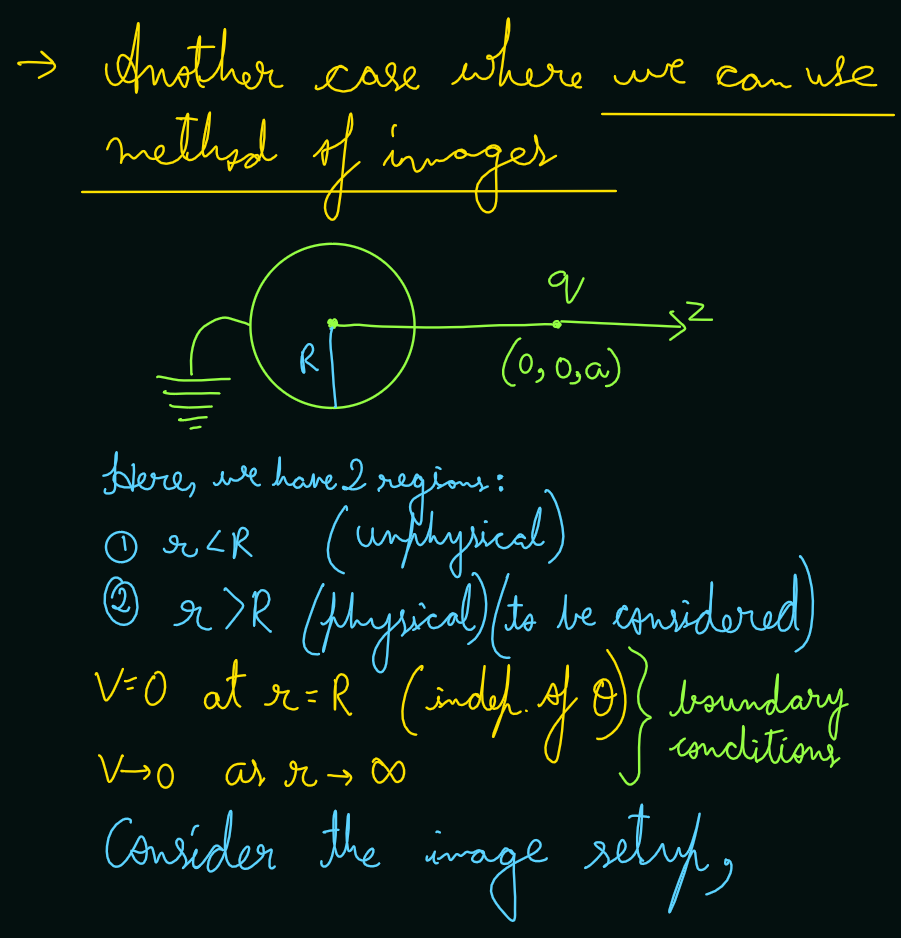 → Another case where we can use
method of images
q
z
R
(0,0,a)
Here, we have 2 regions:
① r<R (unphysical)
② r>R (physical)(to be considered)
V=0 at r=R (indep. of θ) } boundary
conditions
V→0 as r→∞
Consider the image setup,